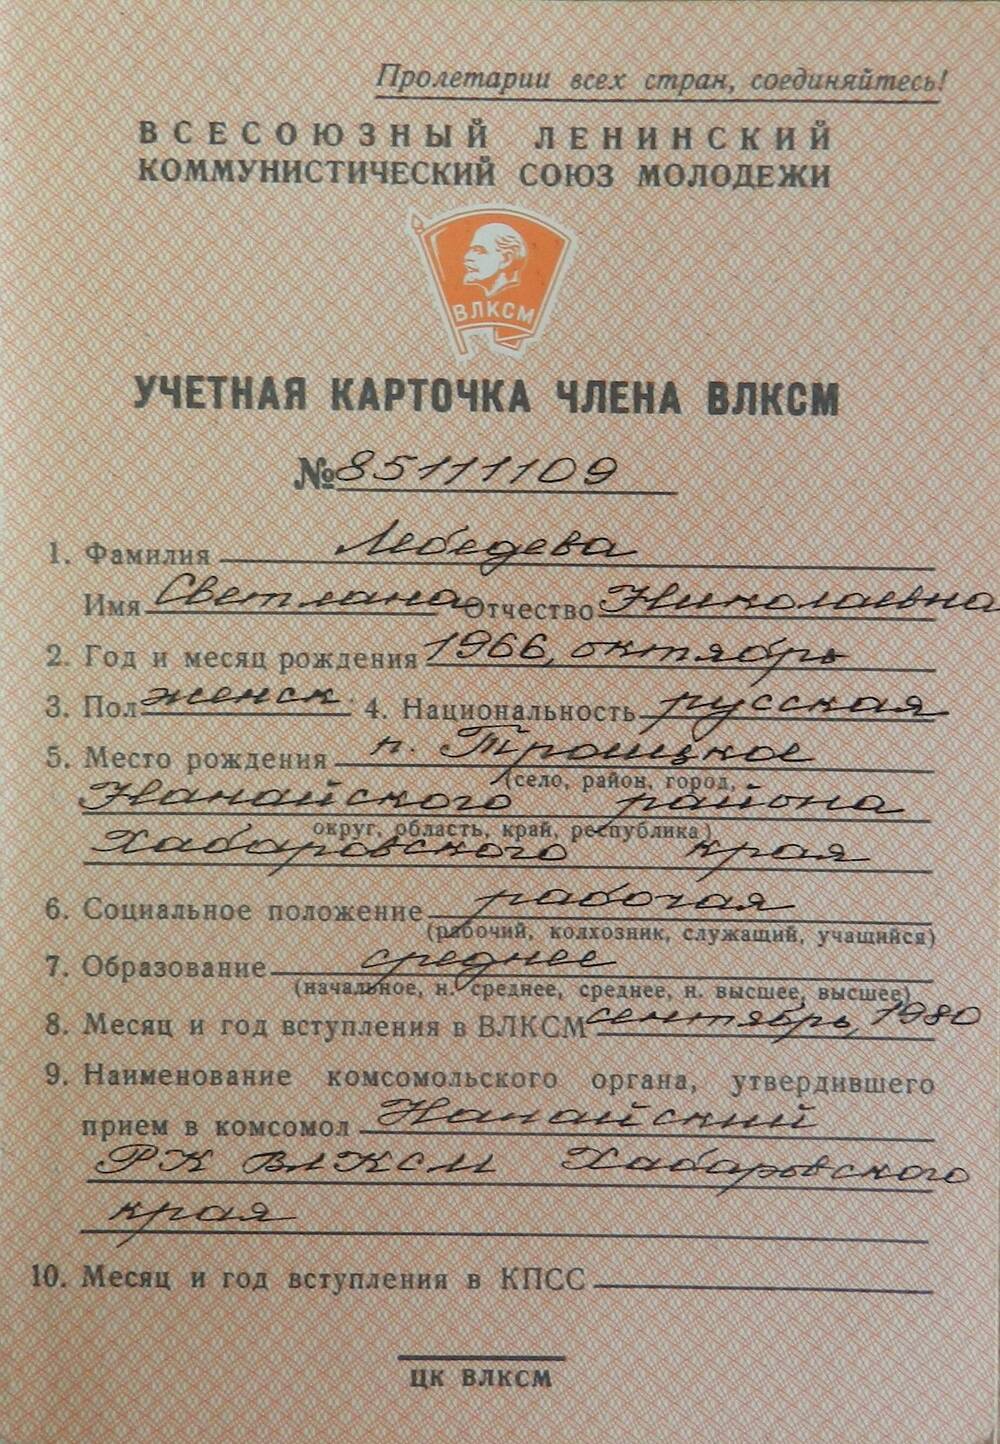 Пролетарии всех стран, соединяйтесь!
ВСЕСОЮЗНЫЙ ЛЕНИНСКИЙ
КОММУНИСТИЧЕСКИЙ СОЮЗ МОЛОДЕЖИ
ВЛКСМ
УЧЕТНАЯ КАРТОЧКА ЧЛЕНА ВЛКСМ
№ 85111109
1. Фамилия Лебедева
Имя Светлана Отчество Николаевна
2. Год и месяц рождения 1966, октябрь
3. Пол женск 4. Национальность русская
5. Место рождения п. Троицкое
(село, район, город,
Нанайского района
округ, область, край, республика)
Хабаровского края
6. Социальное положение рабочая
(рабочий, колхозник, служащий, учащийся)
7. Образование среднее
(начальное, н. среднее, среднее, н. высшее, высшее)
8. Месяц и год вступления в ВЛКСМ сентябрь, 1980
9. Наименование комсомольского органа, утвердившего
прием в комсомол Нанайский
РК ВЛКСМ Хабаровского
края
10. Месяц и год вступления в КПСС
ЦК ВЛКСМ